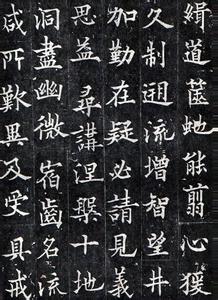 緝道篋虵能翦心猨
久制迴流增智望井
加勤在疑必請見義
思益尋講涅槃十地
洞盡幽微宿齒名流
咸所歎異及受具戒